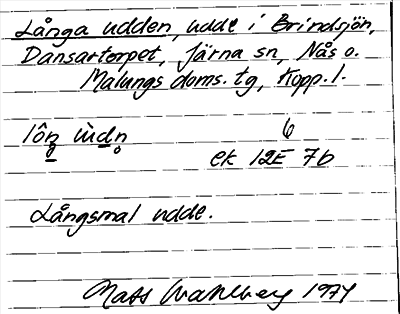 Långa udden, udde i Brindsjön,
Dansartorpet, Järna sn, Nås o.
Malungs doms. tg, Kopp. l.
6
ek 12E 7b
Långsmal udde.
Mats Wahlberg 1974